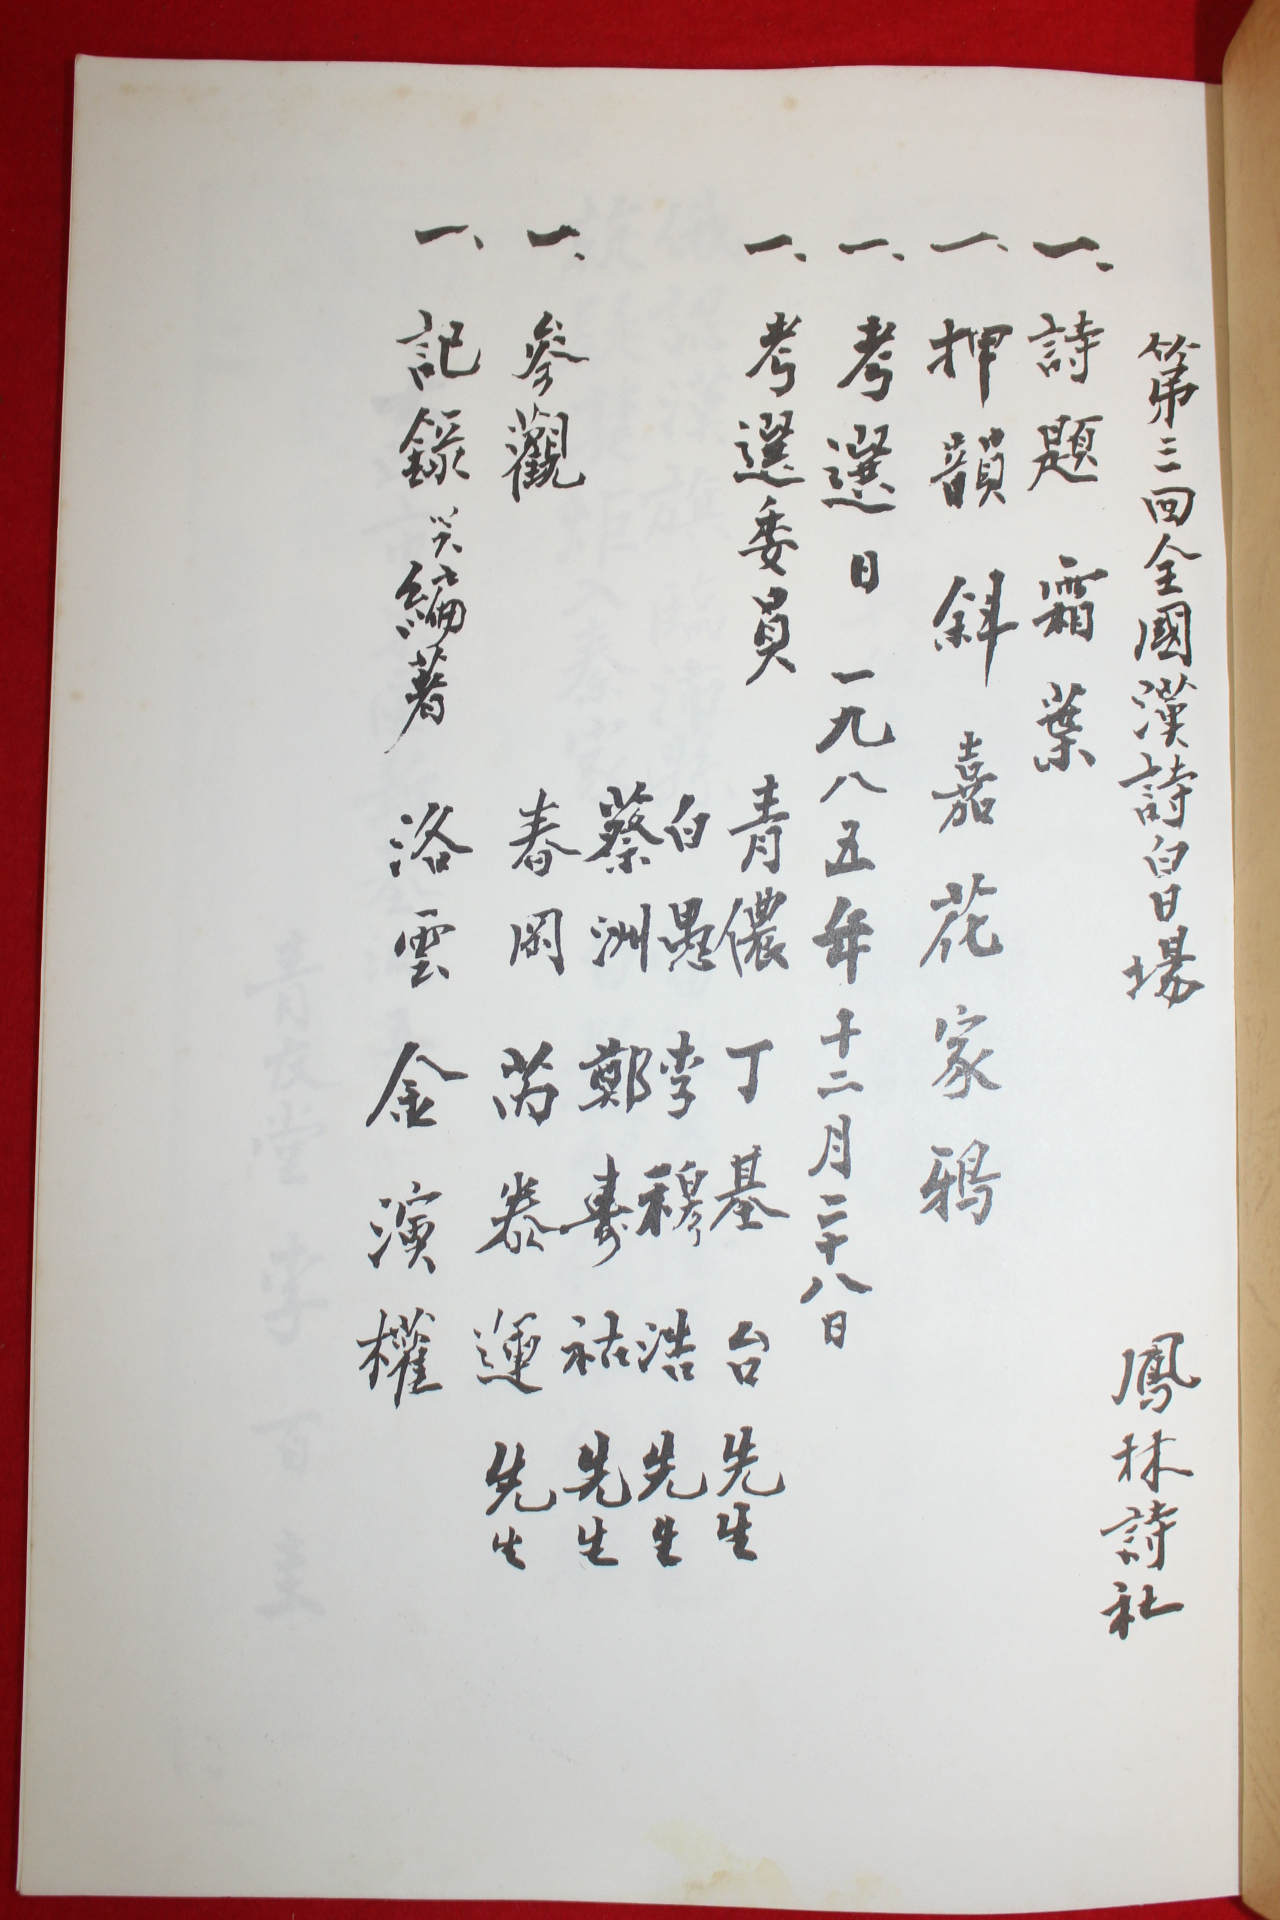 第三回全國漢詩白日場 鳳林詩社
一、詩題 霜葉
一、押韻 斜 嘉 花 家 鴉
一、考選日 一九八五年十二月二十八日
一、考選委員 青儂 丁基台先生
白愚 李穆浩先生
蔡洲 鄭壽祜先生
一、參觀 春岡 芮泰運先生
一、記錄兴編著 洛雲 金演權